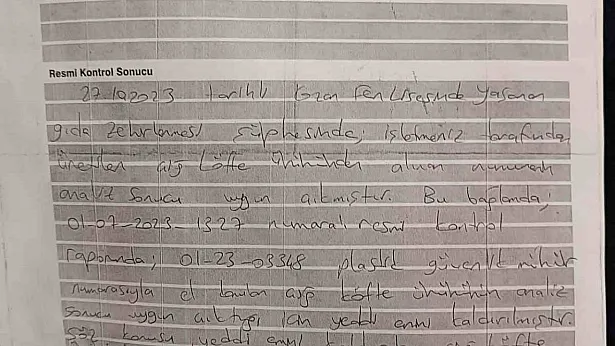 Resmi Kontrol Sonucu
27-10.2023 tarihli Fen Lisesinde yaşanan
gıda zehirlenmesi şüphesinde; işletmeniz tarafından
üretilen çiğ köfte ürününden alınan numunenin
analiz sonucu uygun çıkmıştır. Bu bağlamda;
01-07-2023-1327 numaralı resmi kontrol
raporunda; 01-23-03348 plastik güvenlik mühür
numarasıyla el konulan çiğ köfte ürününün analiz
sonucu uygun çıktığı için yeddi emin kaldırılmıştır.
Söz konusu yeddi emin çiğ köfte